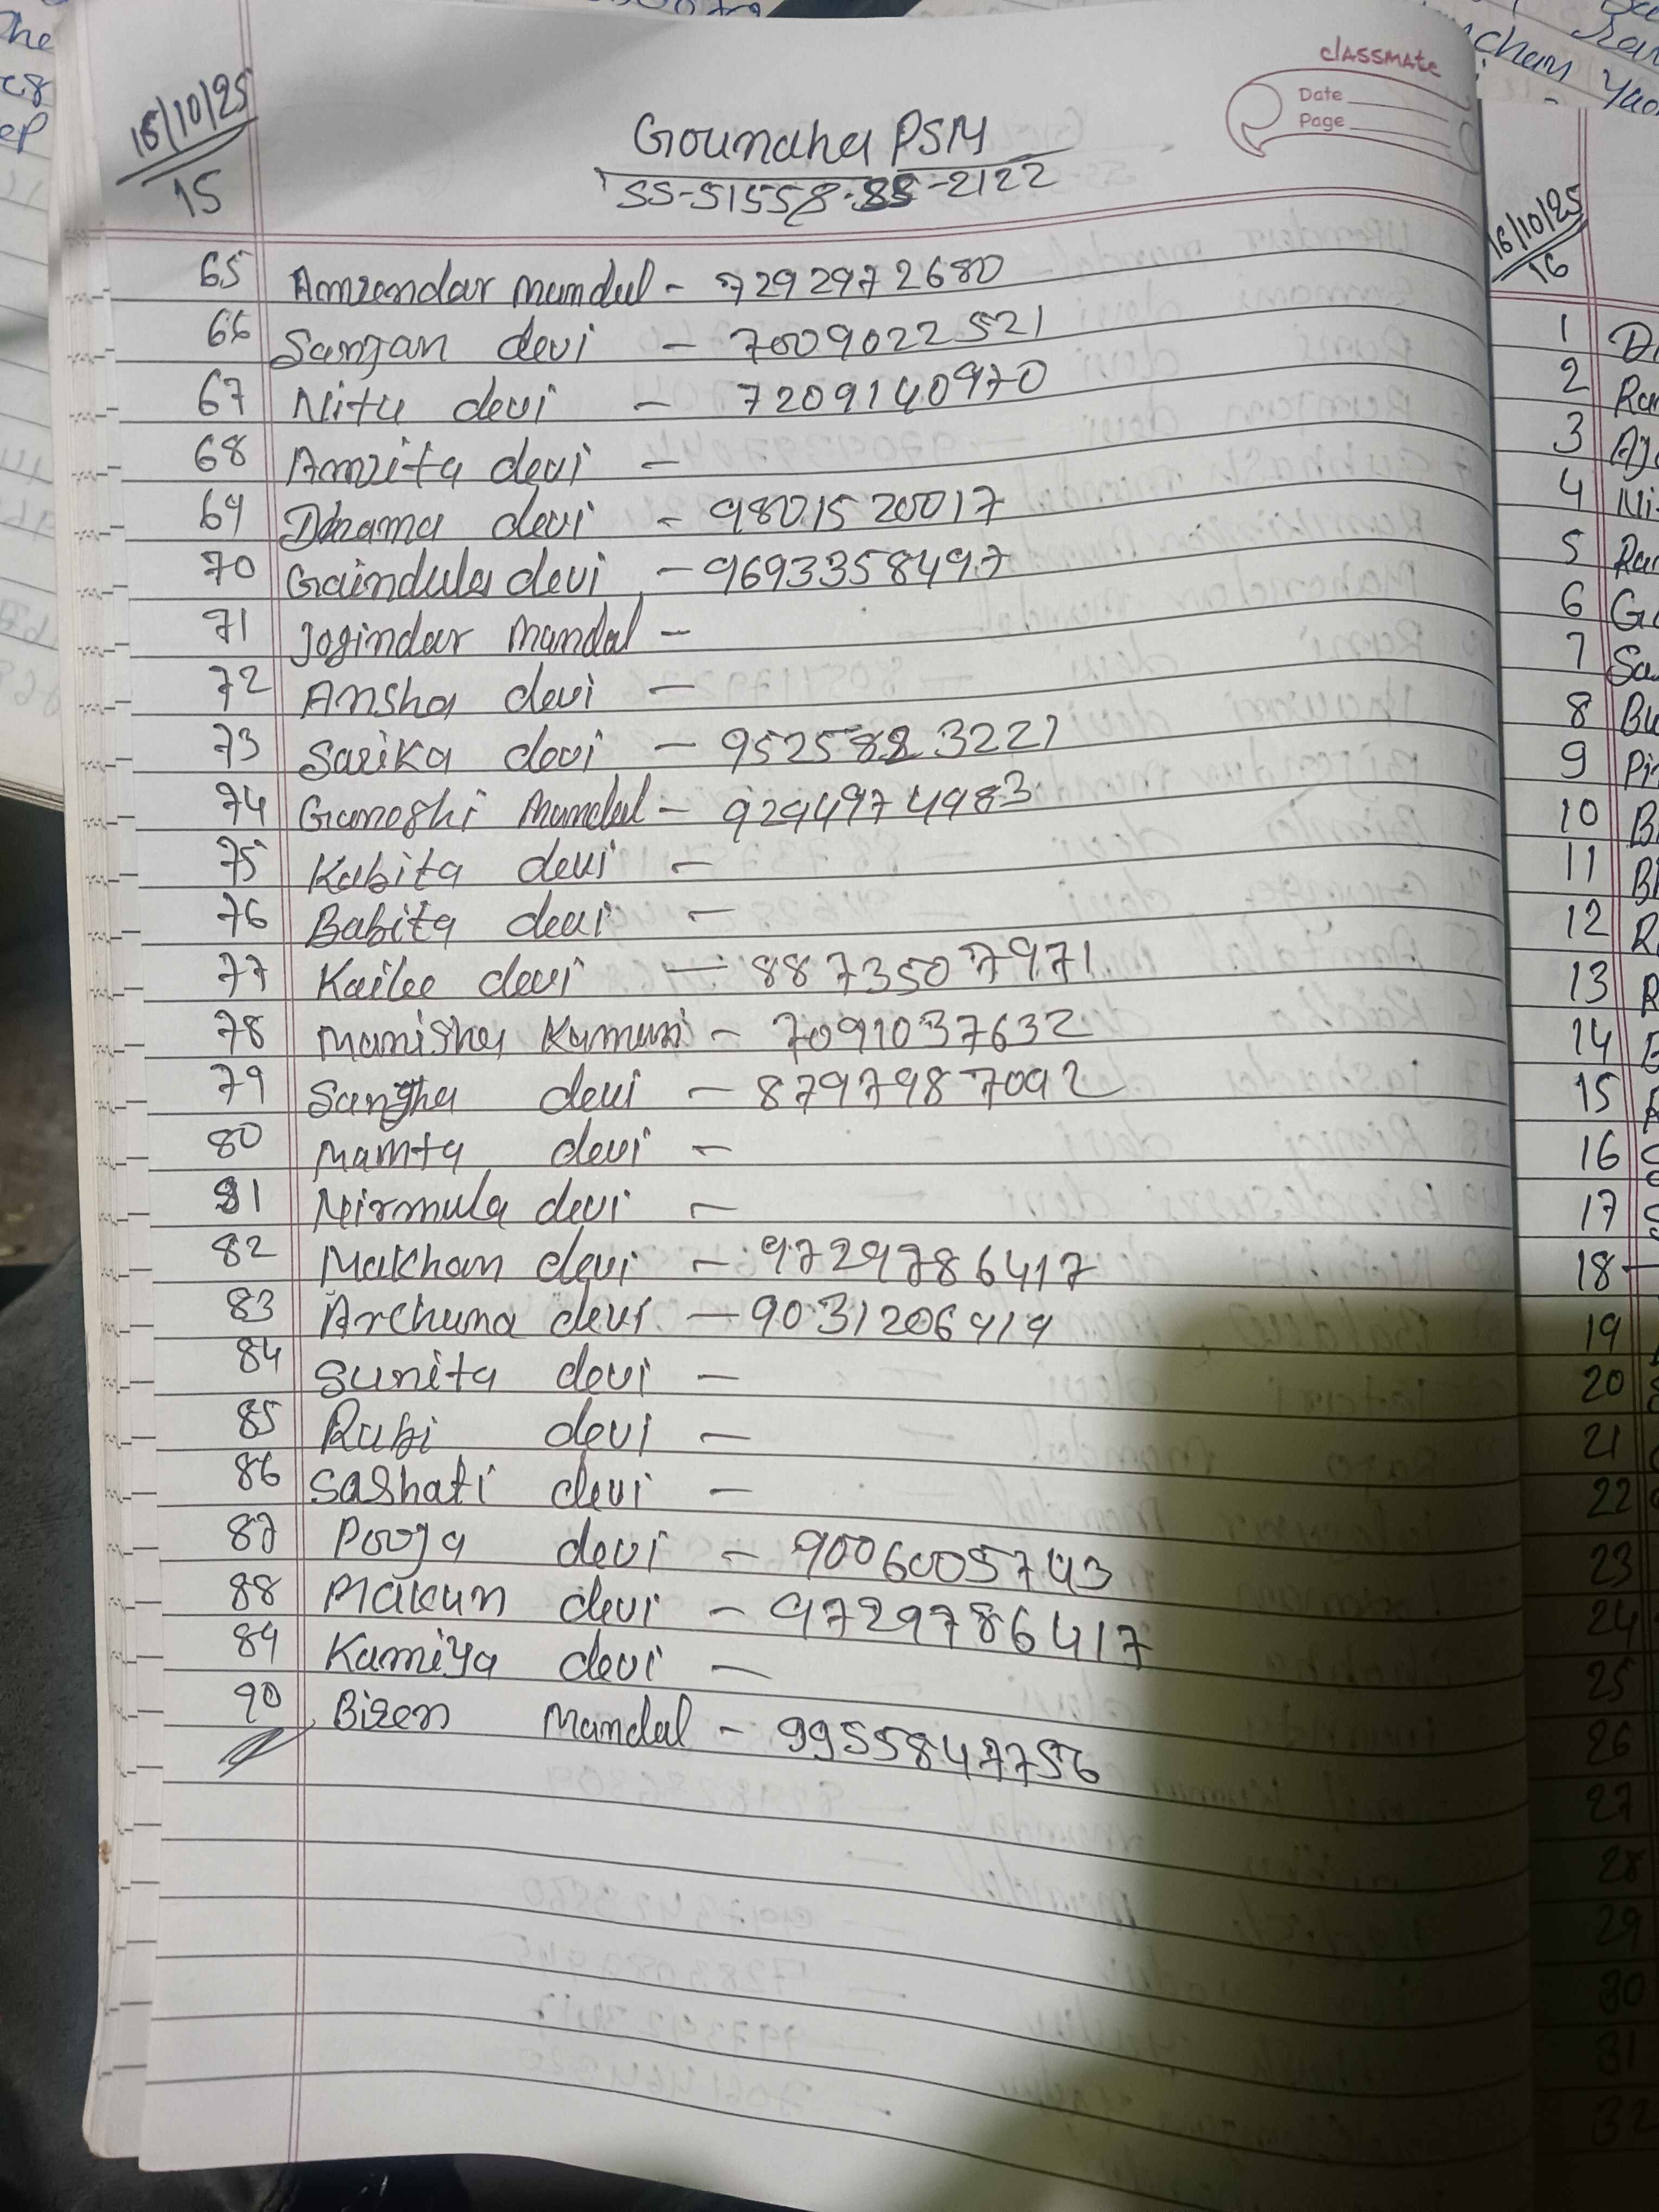 classmate
Date
Page
16/10/25
15
Gounaha PSM
SS-51558-SS-2122
65 Amrendar mandal - 7292972680
66 Sanjan devi - 7009022521
67 Nitu devi - 7209140970
68 Amrita devi -
69 Dhrama devi - 9801520017
70 Gaindula devi - 9693358497
71 Jogindar Mandal -
72 Ansha devi -
73 Sarika devi - 9525823221
74 Ganeshi Mandal - 9294974983
75 Kabita devi -
76 Babita devi -
77 Kailee devi - 8873507971
78 Manisha Kumari - 7091037632
79 devi - 8797987092
80 Mamta devi -
81 Nirmala devi -
82 Makhan devi - 9729786417
83 Archana devi - 9031206919
84 Sunita devi -
85 Rubi devi -
86 Sashati devi -
87 Pooja devi - 9006005743
88 Makun devi - 9729786417
89 Kamiya devi -
90 Biren Mandal - 9955847756
16/10/25
16
1
2
3
4
5
6
7
8
9
10
11
12
13
14
15
16
17
18
19
20
21
22
23
24
25
26
27
28
29
30
31
32